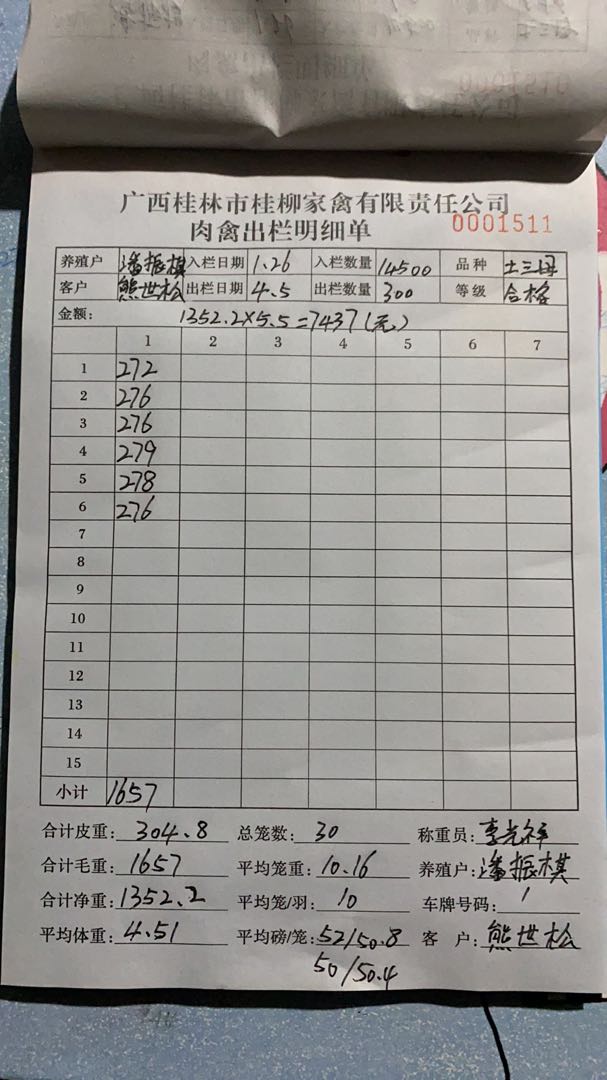 广西桂林市桂柳家禽有限责任公司
肉禽出栏明细单 0001511
养殖户 潘振棋 入栏日期 1.26 入栏数量 14500 品种 土三母
客户 熊世松 出栏日期 4.5 出栏数量 300 等级 合格
金额: 1352.2×5.5=7437(元)
1 2 3 4 5 6 7
1 272
2 276
3 276
4 279
5 278
6 276
7
8
9
10
11
12
13
14
15
小计 1657
合计皮重: 304.8 总笼数: 30 称重员: 李光祥
合计毛重: 1657 平均笼重: 10.16 养殖户: 潘振棋
合计净重: 1352.2 平均笼/羽: 10 车牌号码: /
平均体重: 4.51 平均磅/笼: 52/50.8 客户: 熊世松
50/50.4